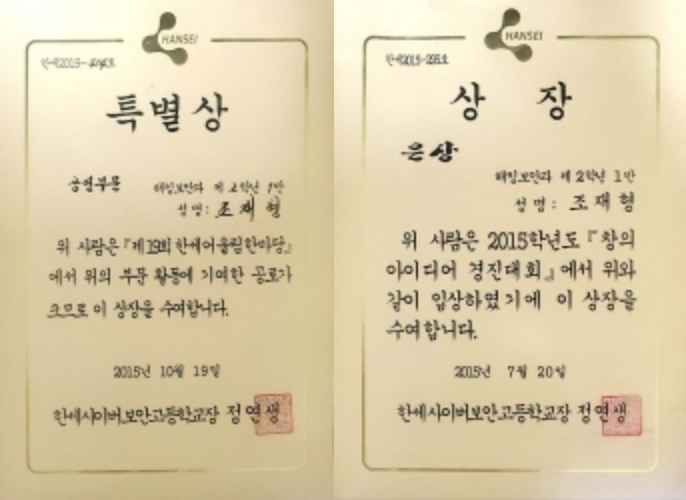 HANSEI
특별상
공연부문
해킹보안과 제 2학년 1반
성명: 조재형
위 사람은 『제19회 한세어울림한마당』
에서 위의 부문 활동에 기여한 공로가
크므로 이 상장을 수여합니다.
2015년 10월 19일
한세사이버보안고등학교장 정연생
HANSEI
한세2015-
상 장
은상
해킹보안과 제 2학년 1반
성명: 조재형
위 사람은 2015학년도 『창의
아이디어 경진대회』에서 위와
같이 입상하였기에 이 상장을
수여합니다.
2015년 7월 20일
한세사이버보안고등학교장 정연생